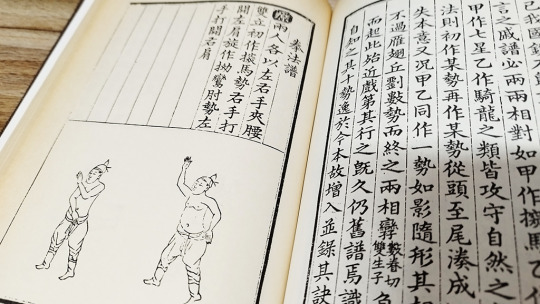 己我國
言之戚譜必兩兩相對如甲作探馬乙作
甲作七星乙作騎龍之類皆攻守自然之
法則初作某勢再作某勢從頭至尾湊成
失本意又況甲乙同作一勢如影隨形其
不過雁翅丘劉數勢而終之兩相孿數眷切雙生子負
而起此殆近戲第其行之旣久仍舊譜焉識
自知之其十勢逸於今本故增入並錄其訣
拳法譜
兩人各以左右手夾腰
雙立初作探馬勢右手打
開左肩旋作拗鸞肘勢左
手打開右肩